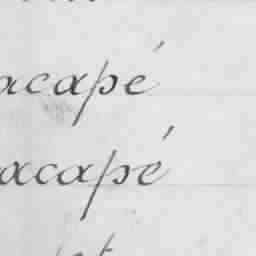 acapé
acapé